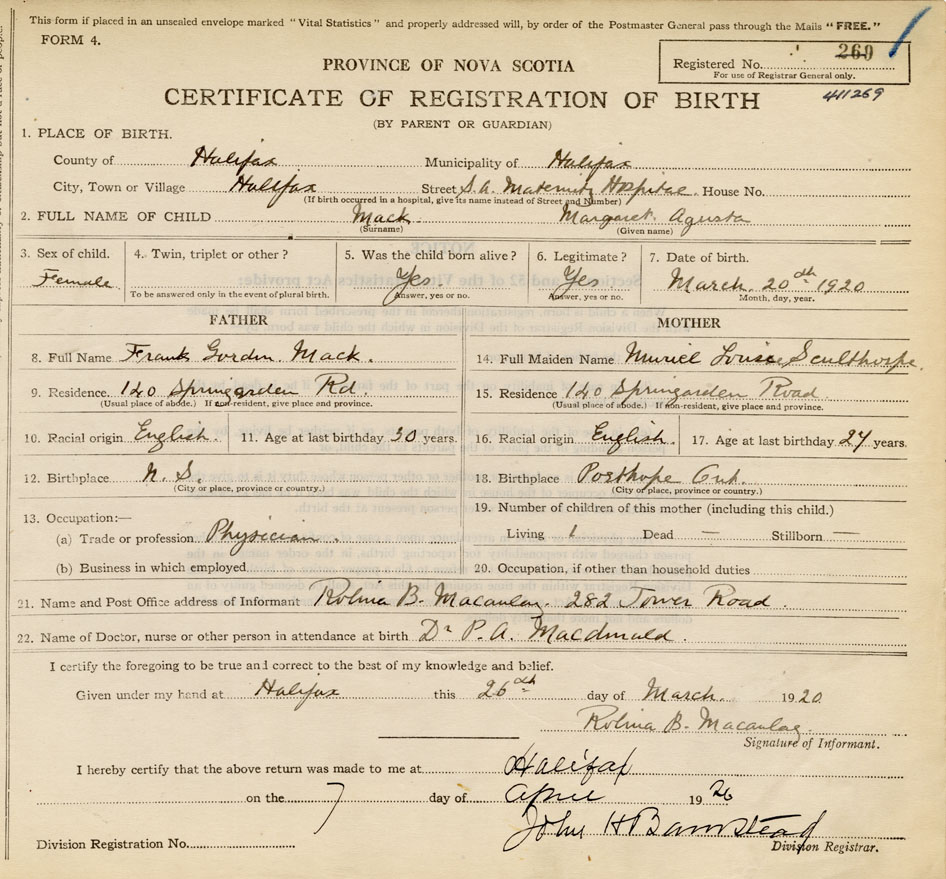 This form if placed in an unsealed envelope marked "Vital Statistics" and properly addressed will, by order of the Postmaster General pass through the Mails "FREE."
FORM 4.
260
Registered No.
For use of Registrar General only.
PROVINCE OF NOVA SCOTIA
CERTIFICATE OF REGISTRATION OF BIRTH
411269
(BY PARENT OR GUARDIAN)
1. PLACE OF BIRTH.
County of Halifax Municipality of Halifax
City, Town or Village Halifax Street S.A. Maternity Hospital House No.
(If birth occurred in a hospital, give its name instead of Street and Number)
2. FULL NAME OF CHILD Mack Margaret Agusta
(Surname) (Given name)
3. Sex of child. 4. Twin, triplet or other? 5. Was the child born alive? 6. Legitimate? 7. Date of birth.
Female Yes. Yes March 20th 1920
To be answered only in the event of plural birth. Answer, yes or no. Answer, yes or no. Month, day, year.
FATHER MOTHER
8. Full Name Frank Gordon Mack. 14. Full Maiden Name Muriel Louise Sculthorpe
9. Residence. 140 Springarden Rd. 15. Residence 140 Springarden Road
(Usual place of abode.) If non-resident, give place and province. (Usual place of abode.) If non-resident, give place and province.
10. Racial origin English. 11. Age at last birthday 30 years. 16. Racial origin English. 17. Age at last birthday 27 years.
12. Birthplace N. S. 18. Birthplace Porthope Ont.
(City or place, province or country.) (City or place, province or country.)
13. Occupation:— 19. Number of children of this mother (including this child.)
(a) Trade or profession Physician Living 1 Dead — Stillborn —
(b) Business in which employed 20. Occupation, if other than household duties
21. Name and Post Office address of Informant Rolina B. Macaulay. 282 Tower Road.
22. Name of Doctor, nurse or other person in attendance at birth Dr P. A. Macdonald.
I certify the foregoing to be true and correct to the best of my knowledge and belief.
Given under my hand at Halifax this 26th day of March. 1920
Rolina B. Macaulay
Signature of Informant.
I hereby certify that the above return was made to me at Halifax
on the 7 day of April 1920
John H Barnstead
Division Registration No. Division Registrar.